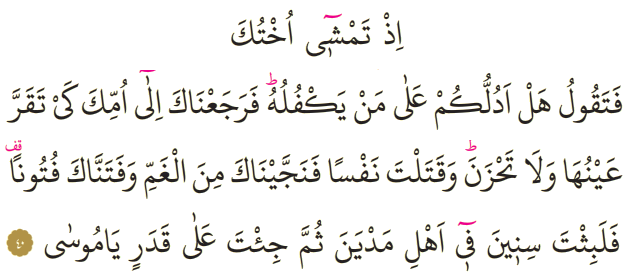 اِذْ تَمْشٖٓى اُخْتُكَ
فَتَقُولُ هَلْ اَدُلُّكُمْ عَلٰى مَنْ يَكْفُلُهُۜ فَرَجَعْنَاكَ اِلٰٓى اُمِّكَ كَىْ تَقَرَّ
عَيْنُهَا وَلَا تَحْزَنَۜ وَقَتَلْتَ نَفْسًا فَنَجَّيْنَاكَ مِنَ الْغَمِّ وَفَتَنَّاكَ فُتُونًا۠ قف
فَلَبِثْتَ سِنٖينَ فٖٓى اَهْلِ مَدْيَنَ ثُمَّ جِئْتَ عَلٰى قَدَرٍ يَامُوسٰى ٤٠